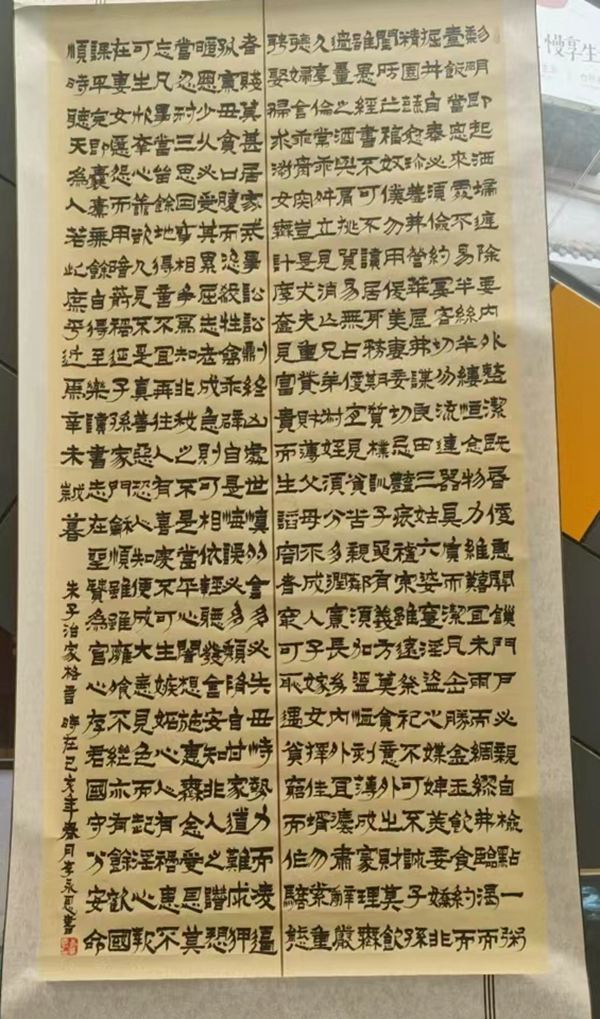 黎明即起洒埽庭除要內外整潔既昏便息關鎖門戶必親自檢點一粥
壹飯當思來處不易半絲半縷恒念物力維囏宜未雨而綢繆毋臨渴而
掘井自奉必須儉約宴客切勿流連器具質而潔瓦缶勝金玉飲食約而
精園蔬愈珍羞弗營華屋弗謀良田三姑六婆實淫盜之媒婢美妾嬌非
閨房之福奴僕勿用俊美妻妾切忌豔妝祖宗雖遠祭祀不可不誠子孫
雖愚經書不可不讀居身務期質樸訓子須有義方莫貪意外之財莫飲
過量之酒與肩挑貿易無占便宜見貧苦親鄰須加溫恤刻薄成家理無
久享倫常乖舛立見消亾兄弟叔姪須分多潤寡長幼內外宜瀍肅辭嚴
聽婦言乖骨肉豈是丈夫重財薄父母不成人子嫁女擇佳壻勿索重
聘娶婦求淑女無計厚奩見富貴而生諂容者最可恥遇貧窮而作驕態
者賤莫甚居家戒爭訟訟則終凶處世慎多言多必失毋恃勢力而凌逼
孤寡毋貪口腹而恣殺牲禽乖僻自是悔誤必多頹惰自甘家道難成狎
暱惡少久必受其累屈志老成急則可相依輕聽發言安知非人之譖愬
當忍耐三思因事相爭焉知非我之不是當平心闇想施惠無念受恩莫
忘凡事當留餘地得意不宜再往人有喜慶不可生嫉妬心人有禍患不
可生喜幸心善欲人見不是真善惡恐人知便是大惡見色而起淫心報
在妻女匿怨而用暗箭禍延子孫家門龢順雖雖雍飱不繼亦有餘歡國
課早完即囊橐無餘自得至樂讀書志在聖賢為官心存君國守分安命
順時聽天為人若此庶乎近焉幸未暮
朱子治家格言 時在己亥年春月李永恩書
慢享生